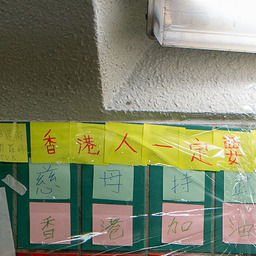 香港人一定要
慈母持
香港加油